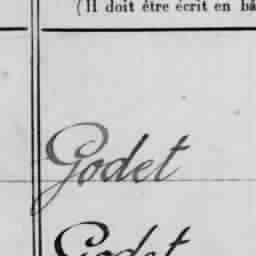 (Il doit être écrit en bâ
Godet
Godet